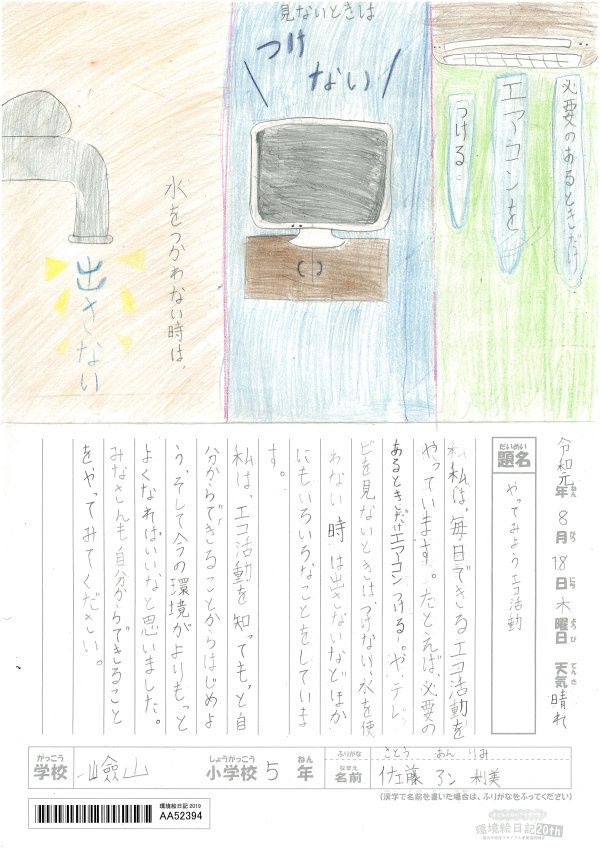 必要のあるときだけ
エアコンを
つける。
見ないときは
つけ
ない
水をつかわない時は、
出さない
令和元年 8月 18日 木曜日 天気 晴れ
ねん がつ にち ようび てんき
だいめい
題名
やってみようエコ活動
私は、毎日できるエコ活動を
やっています。たとえば、必要の
あるときだけエアコンつける。や、テレ
ビを見ないときはつけない、水を使
わない時は出さないなどほか
にもいろいろなことをしていま
す。
私は、エコ活動を知っても、と自
分からできることからはじめよ
う、そして今の環境がよりもっと
よくなればいいなと思いました。
みなさんも自分からできること
をやってみてください。
がっこう しょうがっこう ねん
学校 嶮山 小学校 5 年
ふりがな さとう あん りみ
なまえ
名前 佐藤 アン 利美
(漢字で名前を書いた場合は、ふりがなをふってください)
環境絵日記 2019
AA52394
環境絵日記20th